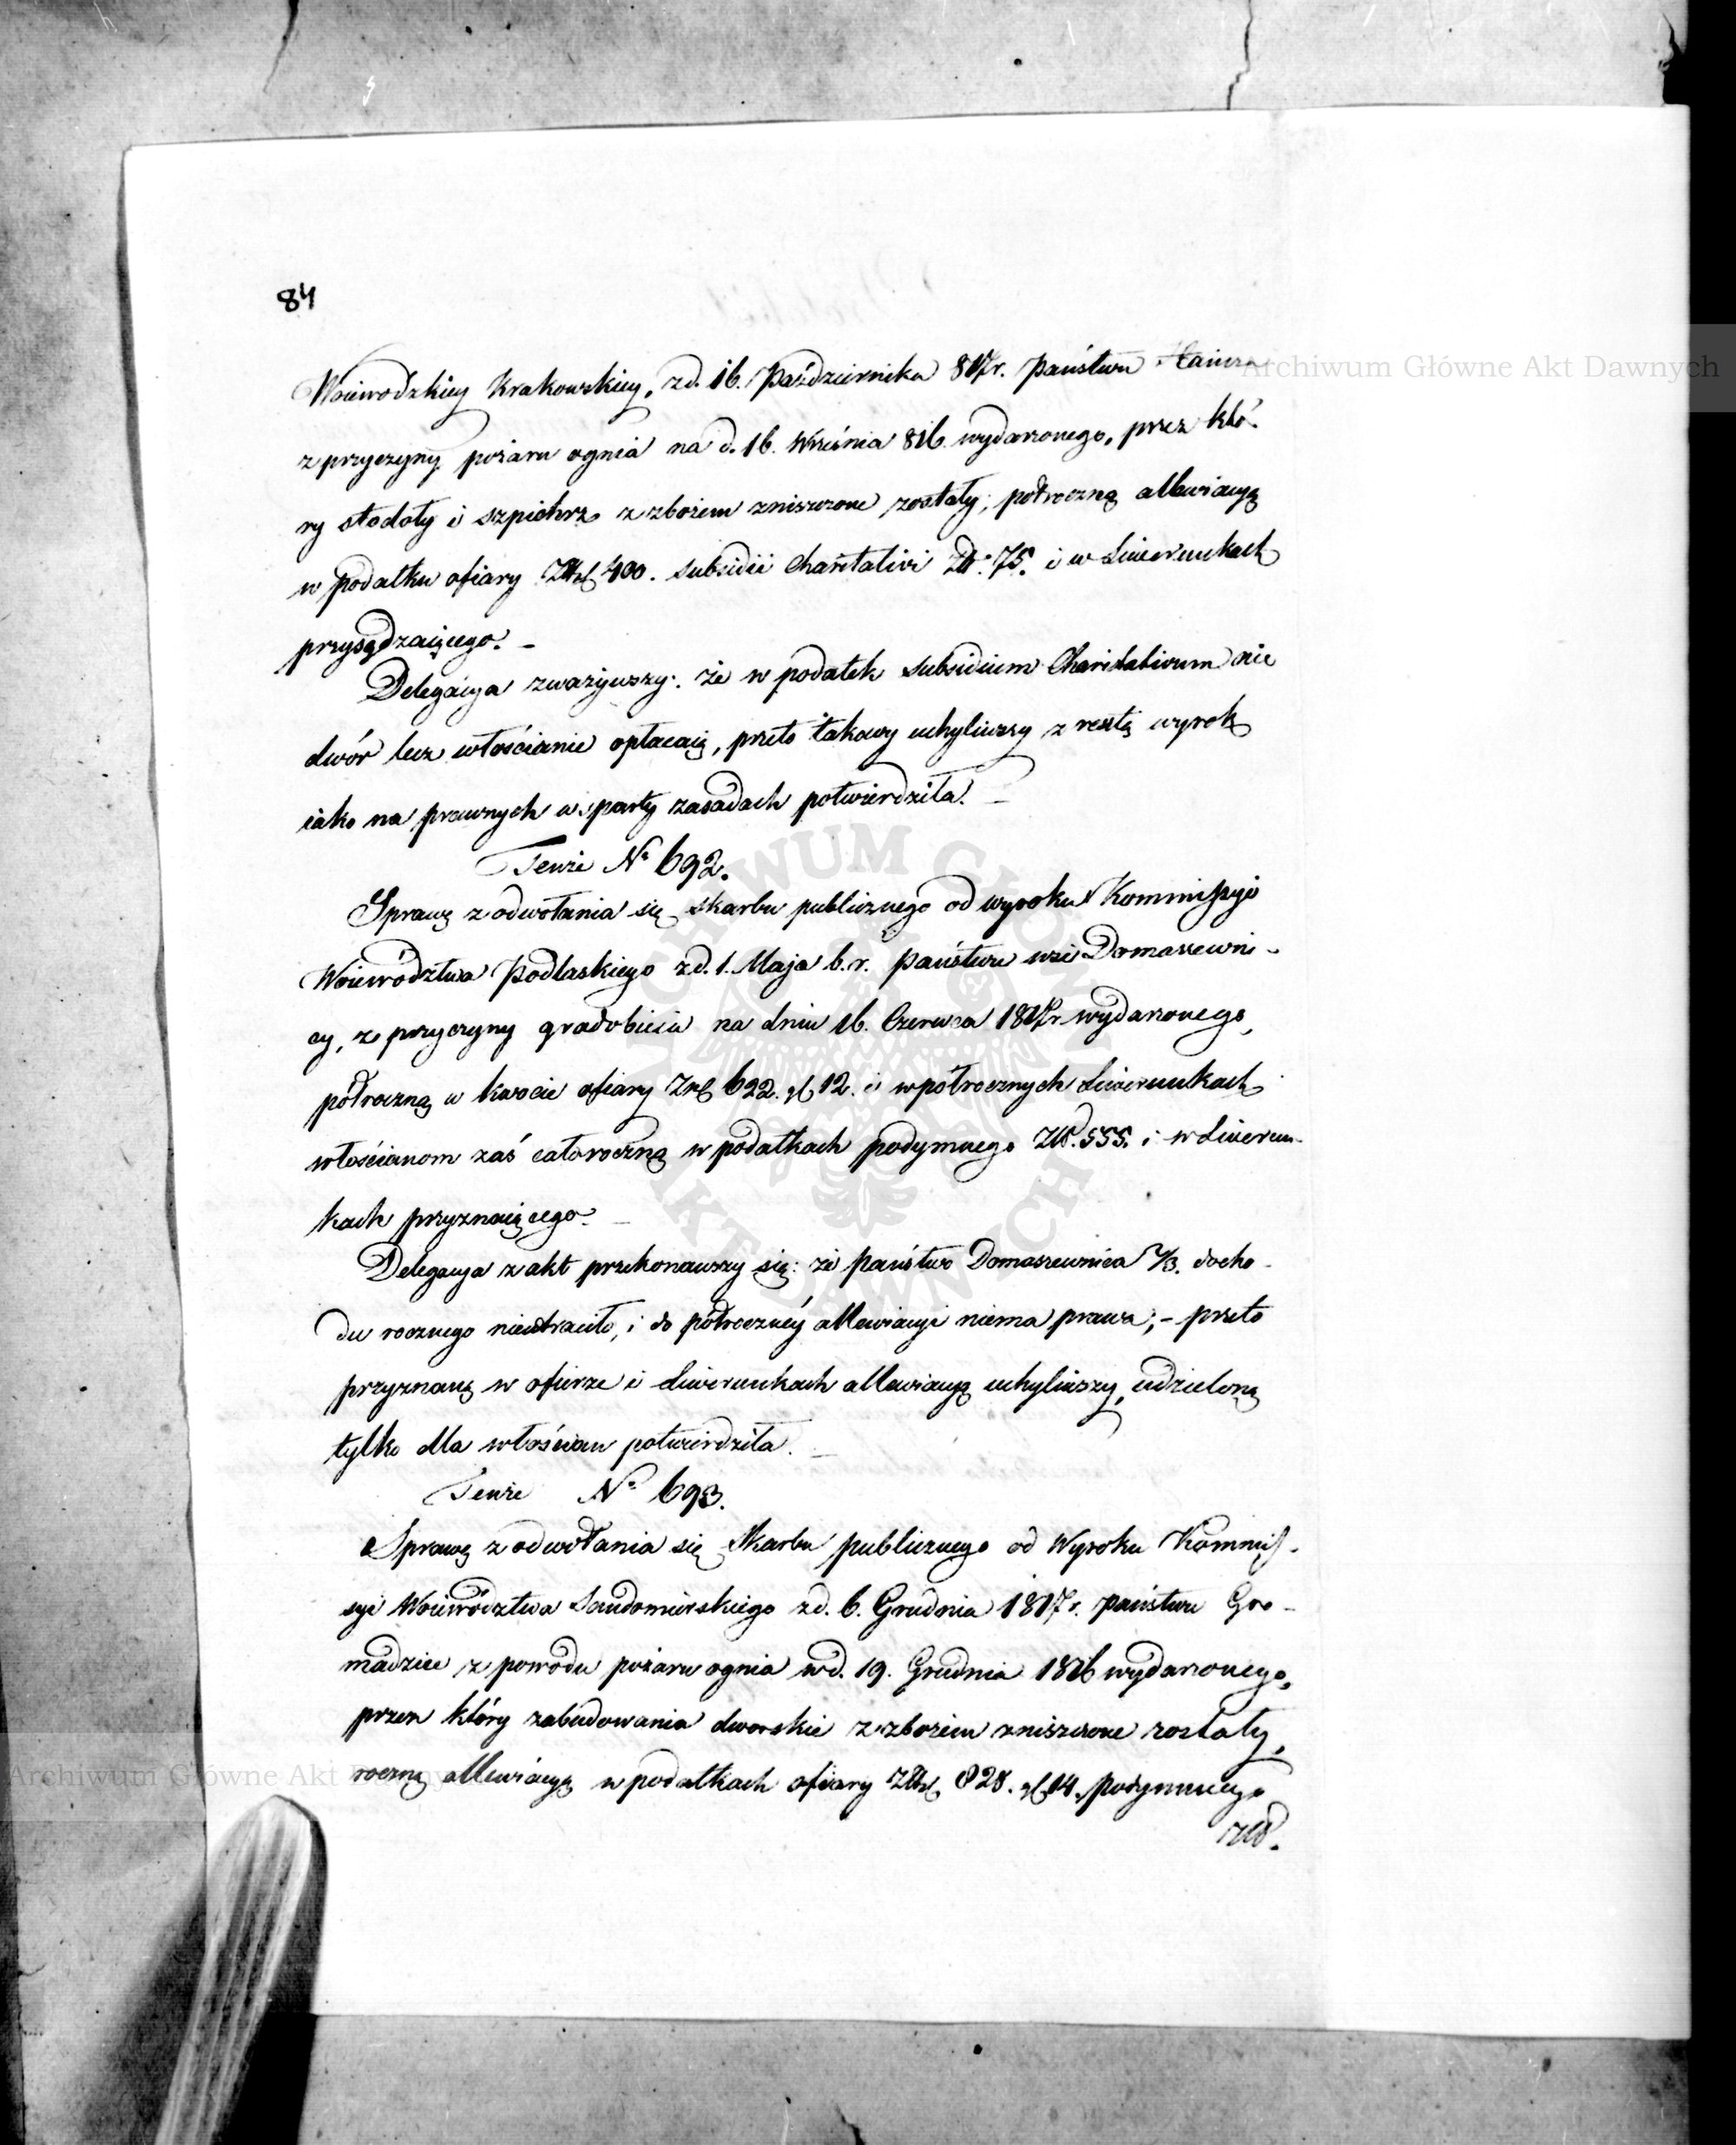 84
Woiewodzkiey Krakowskiey, z d. 16. Października 817r. Państwu
z przyczyny pożaru ognia na d. 16. Września 816. wydarzonego, przez któ-
ry stodoły i szpichrz z zbożem zniszczone zostały, półroczną allewiacyą
w podatku ofiary 400. subsidii Charitativi Złt: 75. i w Liwerunkach
przysądzaiącego. –
Delegacya zważywszy: że w podatek subsidium Charitativum nie
dwór lecz włościanie opłacaią, przeto takowy uchyliwszy z resztą wyrok
iako na prawnych wsparty zasadach potwierdziła. –
Tenże No 692.
Sprawę z odwołania się skarbu publicznego od wyroku Kommissyi
Woiewództwa Podlaskiego z d. 1. Maja b. r. państwu wsi Domaszewni-
cy, z przyczyny gradobicia na dniu 16. Czerwca 1817r. wydarzonego,
półroczną w kwocie ofiary 622. gl 12. i w półrocznych Liwerunkach
włościanom zaś całoroczną w podatkach podymnego Złt. 555. i w Liwerun-
kach przyznaiącego. –
Delegacya z akt przekonawszy się: że państwo Domaszewnica 1/3. docho-
du rocznego nieutraciło, i do półroczney allewiacyi niema prawa; – przeto
przyznaną w ofierze i Liwerunkach allewiacyą uchyliwszy, udzieloną
tylko dla włościan potwierdziła. –
Tenże No 693.
Sprawę z odwołania się Skarbu publicznego od Wyroku Kommis-
syi Woiewództwa Sandomirskiego z d. 6. Grudnia 1817r. państwu Gro-
madzice z powodu pożaru ognia w d. 19. Grudnia 1816 wydarzonego,
przez który zabudowania dworskie z zbożem zniszczone zostały,
roczną allewiacyą w podatkach ofiary 828. gl 14. podymnego
Złt.
Archiwum Główne Akt Dawnych
ARCHIWUM GŁÓWNE AKT DAWNYCH
Archiwum Główne Akt Dawnych